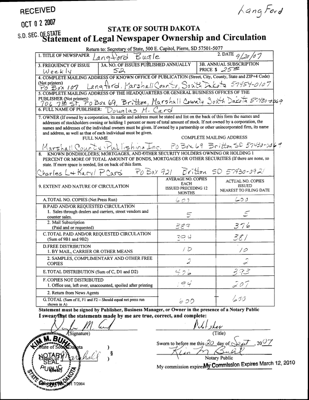 RECEIVED
LangFord
OCT 02 2007
S.D. SEC. OF STATE
STATE OF SOUTH DAKOTA
Statement of Legal Newspaper Ownership and Circulation
Return to: Secretary of State, 500 E. Capitol, Pierre, SD 57501-5077
1. TITLE OF NEWSPAPER Langford Bugle 2. DATE
3. FREQUENCY OF ISSUE 3A. NO. OF ISSUES PUBLISHED ANNUALLY 3B. ANNUAL SUBSCRIPTION
Weekly 52 PRICE $
4. COMPLETE MAILING ADDRESS OF KNOWN OFFICE OF PUBLICATION (Street, City, County, State and ZIP+4 Code)
(Not printers)
Po Box 107 Langford, Marshall County, South Dakota
PUBLISHER (Not printers)
Po Box 69, Britton, Marshall County South Dakota
6. FULL NAME OF PUBLISHER: Douglas M. Card
7. OWNER (If owned by a corporation, its name and address must be stated and list on the back of this form the names and
addresses of stockholders owning or holding 1 percent or more of total amount of stock. If not owned by a corporation, the
names and addresses of the individual owners must be given. If owned by a partnership or other unincorporated firm, its name
and address, as well as that of each individual must be given.
FULL NAME COMPLETE MAILING ADDRESS
Marshall County Publishing Inc. Po Box 69 Britton SD
8. KNOWN BONDHOLDERS, MORTGAGES, AND OTHER SECURITY HOLDERS OWNING OR HOLDING 1
PERCENT OR MORE OF TOTAL AMOUNT OF BONDS, MORTGAGES OR OTHER SECURITIES (If there are none, so
state. If more space is needed, list on back of this form.
Charles L + Karyl P Card Po Box 921 Britton SD
9. EXTENT AND NATURE OF CIRCULATION
AVERAGE NO. COPIES
EACH
ISSUED PRECEDING 12
MONTHS
ACTUAL NO. COPIES
ISSUED
NEAREST TO FILING DATE
A.TOTAL NO. COPIES (Net Press Run)
B.PAID AND/OR REQUESTED CIRCULATION
1. Sales through dealers and carriers, street vendors and
counter sales. 5 5
2. Mail Subscription
(Paid and or requested) 376
C.TOTAL PAID AND/OR REQUESTED CIRCULATION
(Sum of 9B1 and 9B2) 381
D.FREE DISTRIBUTION
1. BY MAIL, CARRIER OR OTHER MEANS 10 10
2. SAMPLES, COMPLIMENTARY AND OTHER FREE
COPIES 2 2
E. TOTAL DISTRIBUTION (Sum of C, D1 and D2)
F. COPIES NOT DISTRIBUTED
1. Office use, left over, unaccounted, spoiled after printing
2. Return from News Agents
G.TOTAL (Sum of E, F1 and F2 - Should equal net press run
shown in A)
Statement must be signed by Publisher, Business Manager, or Owner in the presence of a Notary Public
I swear that the statements made by me are true, correct, and complete:
(Signature) (Title)
State of South Dakota
Sworn to before me this day of Sept. 2007
Kim M. Buhl
Notary Public
My commission expires My Commission Expires March 12, 2010
KIM M. BUHL
NOTARY
PUBLIC
SEAL
STATE OF SOUTH DAKOTA